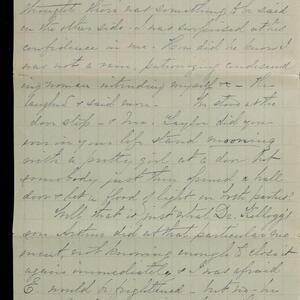 thought there was something to be said
on the other side. I was surprised at his
confidence in me. How did he know I
was not a vain, patronizing condescend
ing woman intruding myself &c - He
laughed & said more. In stars at the
door step - & Mr. Taylor did you
ever in your life stand mooning
with a pretty girl at a door but
somebody just then opened a hall
door & let a flood of light on both parties?
Well that is just what Dr. Kellogg's
son Arthur did at that particular mo-
ment, not knowing enough to close it
again immediately, & I was afraid
E. would be frightened - but no - he